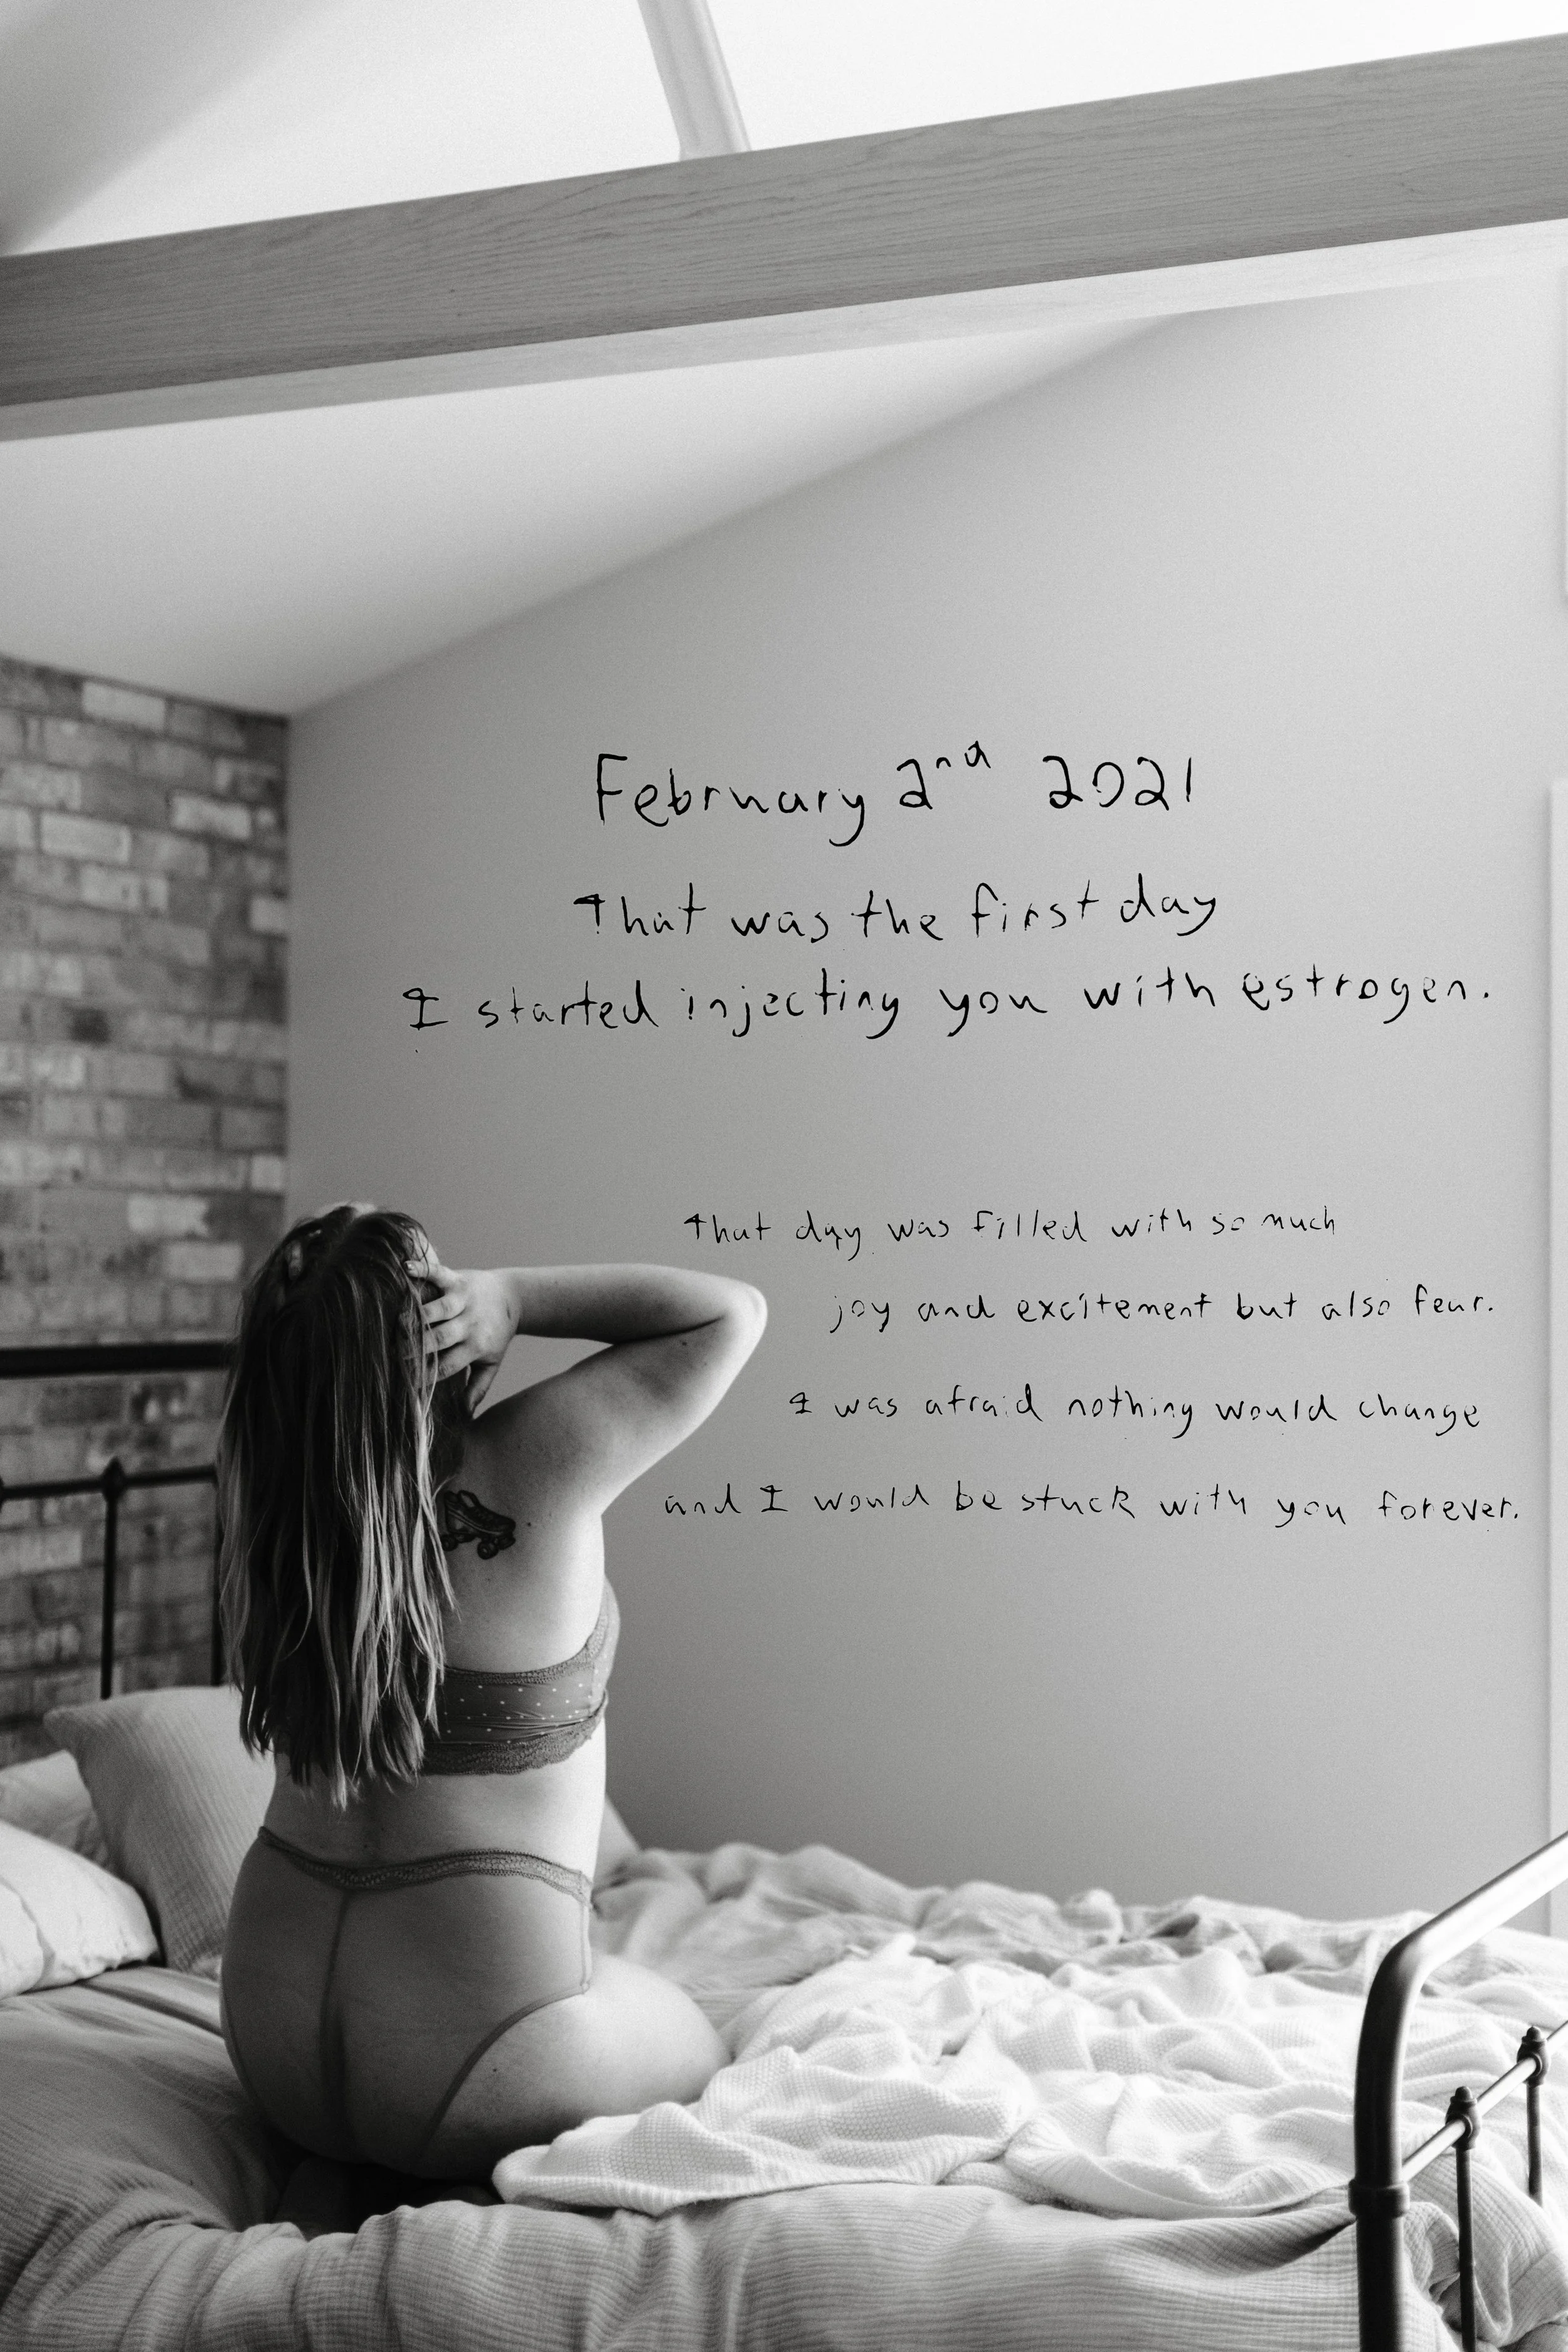 February 2nd 2021
That was the first day
I started injecting you with estrogen.
That day was filled with so much
joy and excitement but also fear.
I was afraid nothing would change
and I would be stuck with you forever.